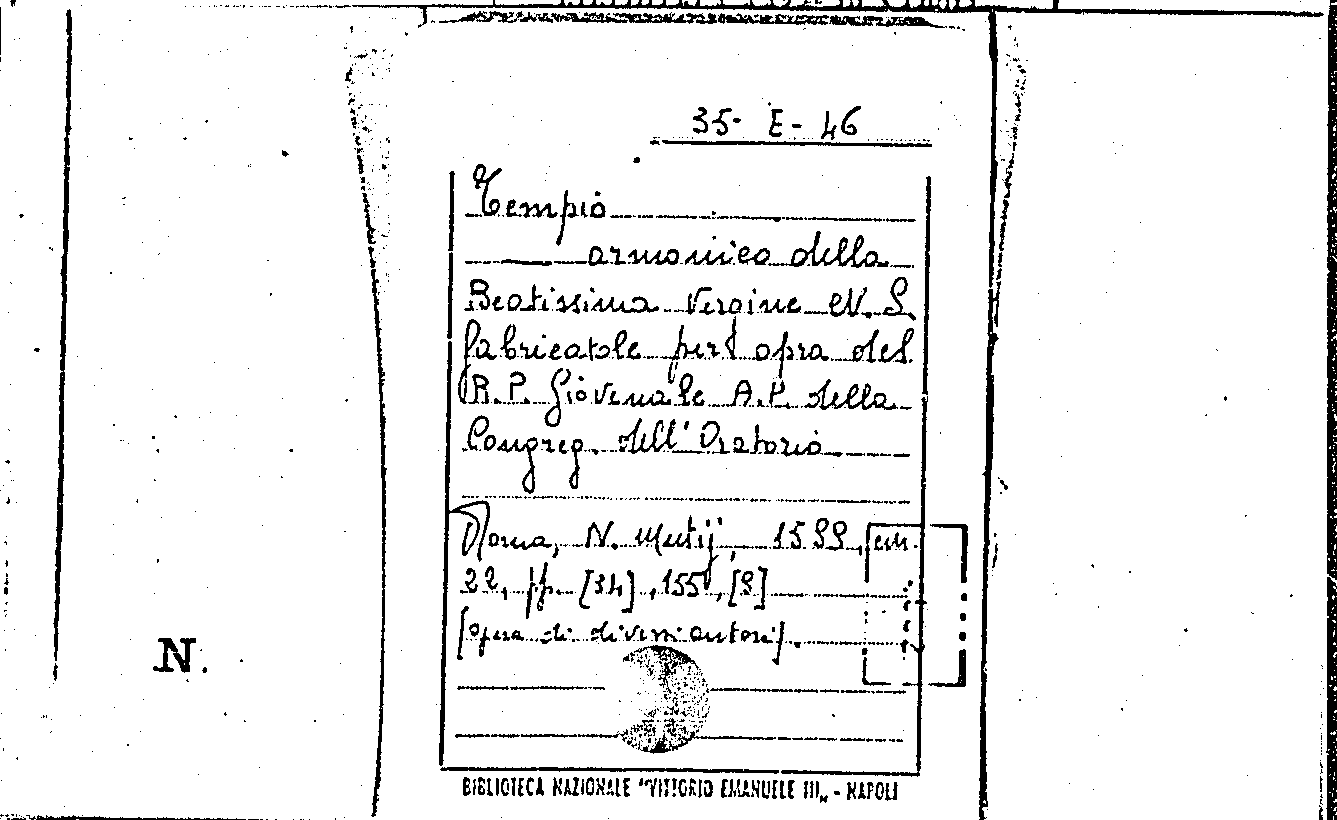 35- E- 46
Tempio
armonico della
Beatissima Vergine N. S.
fabricatole per opra del
R. P. Giovenale A. P. della
Congreg. dell' Oratorio
Roma, N. Mutij, 1599, cm.
22, pp. [34], 155, [9]
[opera di diversi autori].
N.
BIBLIOTECA NAZIONALE "VITTORIO EMANUELE III„ - NAPOLI